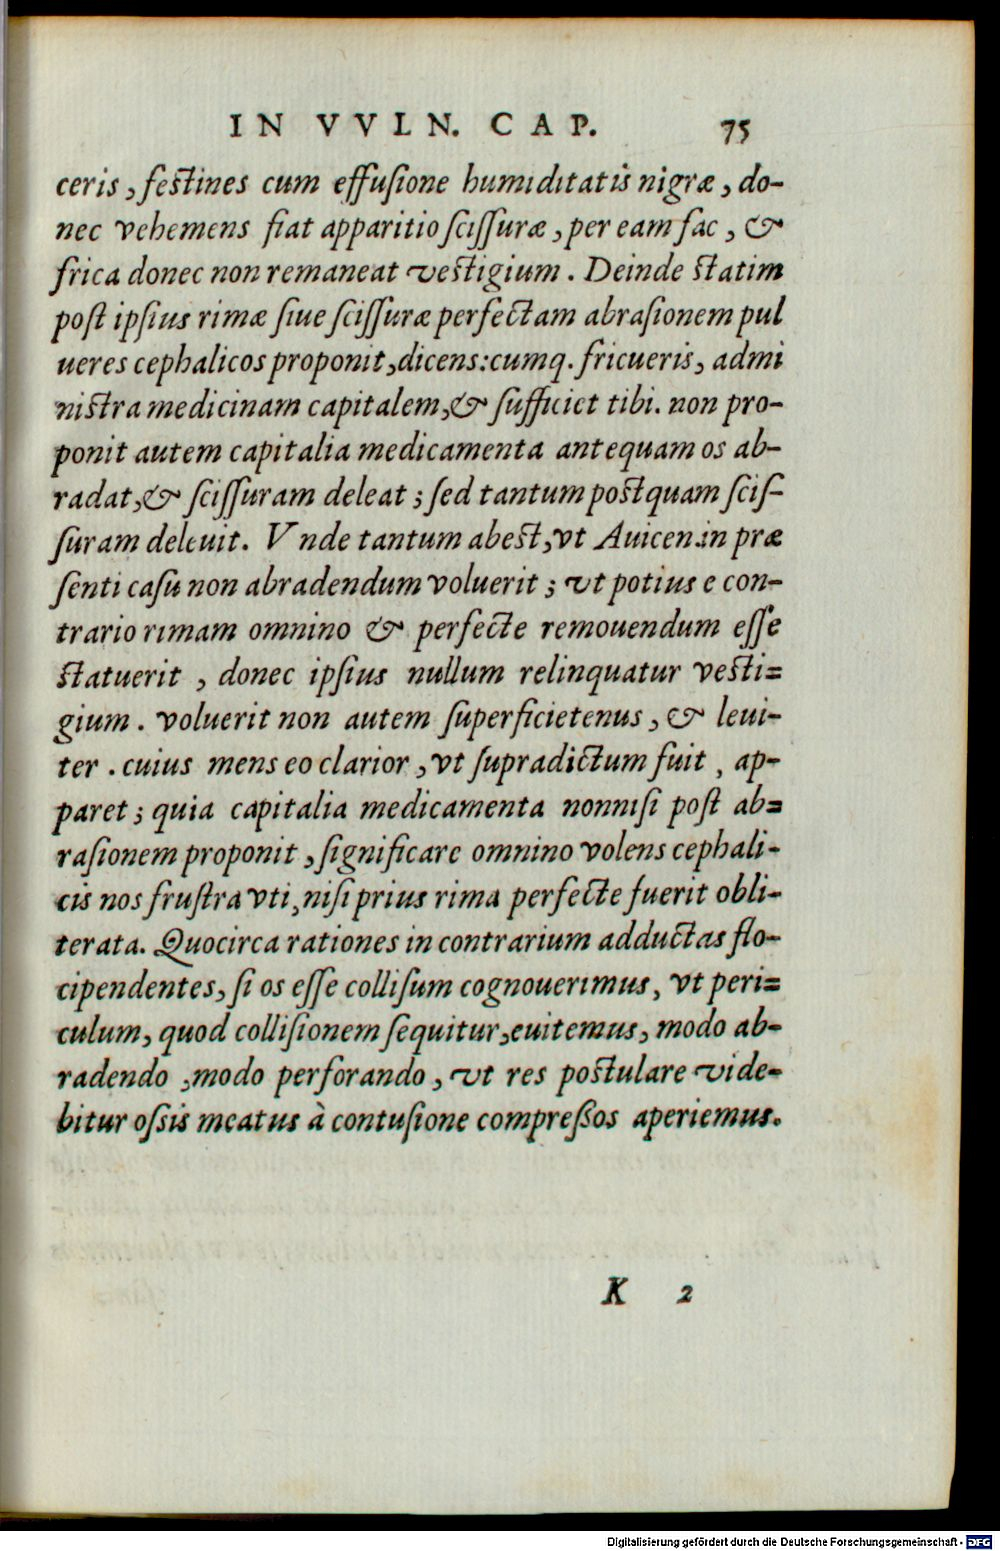 IN VVLN. CAP. 75
ceris, festines cum effusione humiditatis nigræ, do-
nec vehemens fiat apparitio scissuræ, per eam fac, &
frica donec non remaneat vestigium. Deinde statim
post ipsius rimæ siue scissuræ perfectam abrasionem pul
ueres cephalicos proponit, dicens: cumq. fricueris, admi
nistra medicinam capitalem, & sufficiet tibi. non pro-
ponit autem capitalia medicamenta antequam os ab-
radat, & scissuram deleat; sed tantum postquam scis-
suram deleuit. Vnde tantum abest, vt Auicen. in præ
senti casu non abradendum voluerit; vt potius e con-
trario rimam omnino & perfecte remouendum esse
statuerit, donec ipsius nullum relinquatur vesti=
gium. voluerit non autem superficietenus, & leui-
ter. cuius mens eo clarior, vt supradictum fuit, ap-
paret; quia capitalia medicamenta nonnisi post ab=
rasionem proponit, significare omnino volens cephali-
cis nos frustra vti, nisi prius rima perfecte fuerit obli-
terata. Quocirca rationes in contrarium adductas flo-
cipendentes, si os esse collisum cognouerimus, vt peri=
culum, quod collisionem sequitur, euitemus, modo ab-
radendo, modo perforando, vt res postulare vide-
bitur ossis meatus à contusione compreßos aperiemus.
K 2
Digitalisierung gefördert durch die Deutsche Forschungsgemeinschaft - DFG